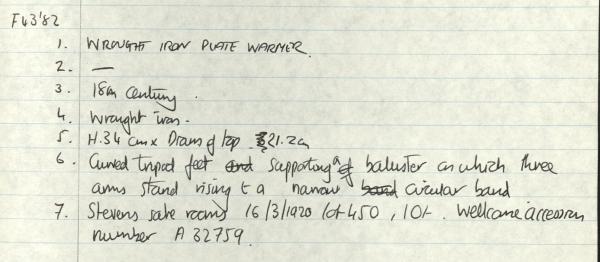 F43'82
1. WROUGHT IRON PLATE WARMER.
2. —
3. 18th Century.
4. Wrought iron.
5. H.34 cm x Diam of top 21.2cm
6. Curved tripod feet and supporting a baluster on which three
arms stand rising to a narrow band circular band
7. Stevens sale rooms 16/3/1920 lot 450, 10/-. Wellcome accession
number A 32759.